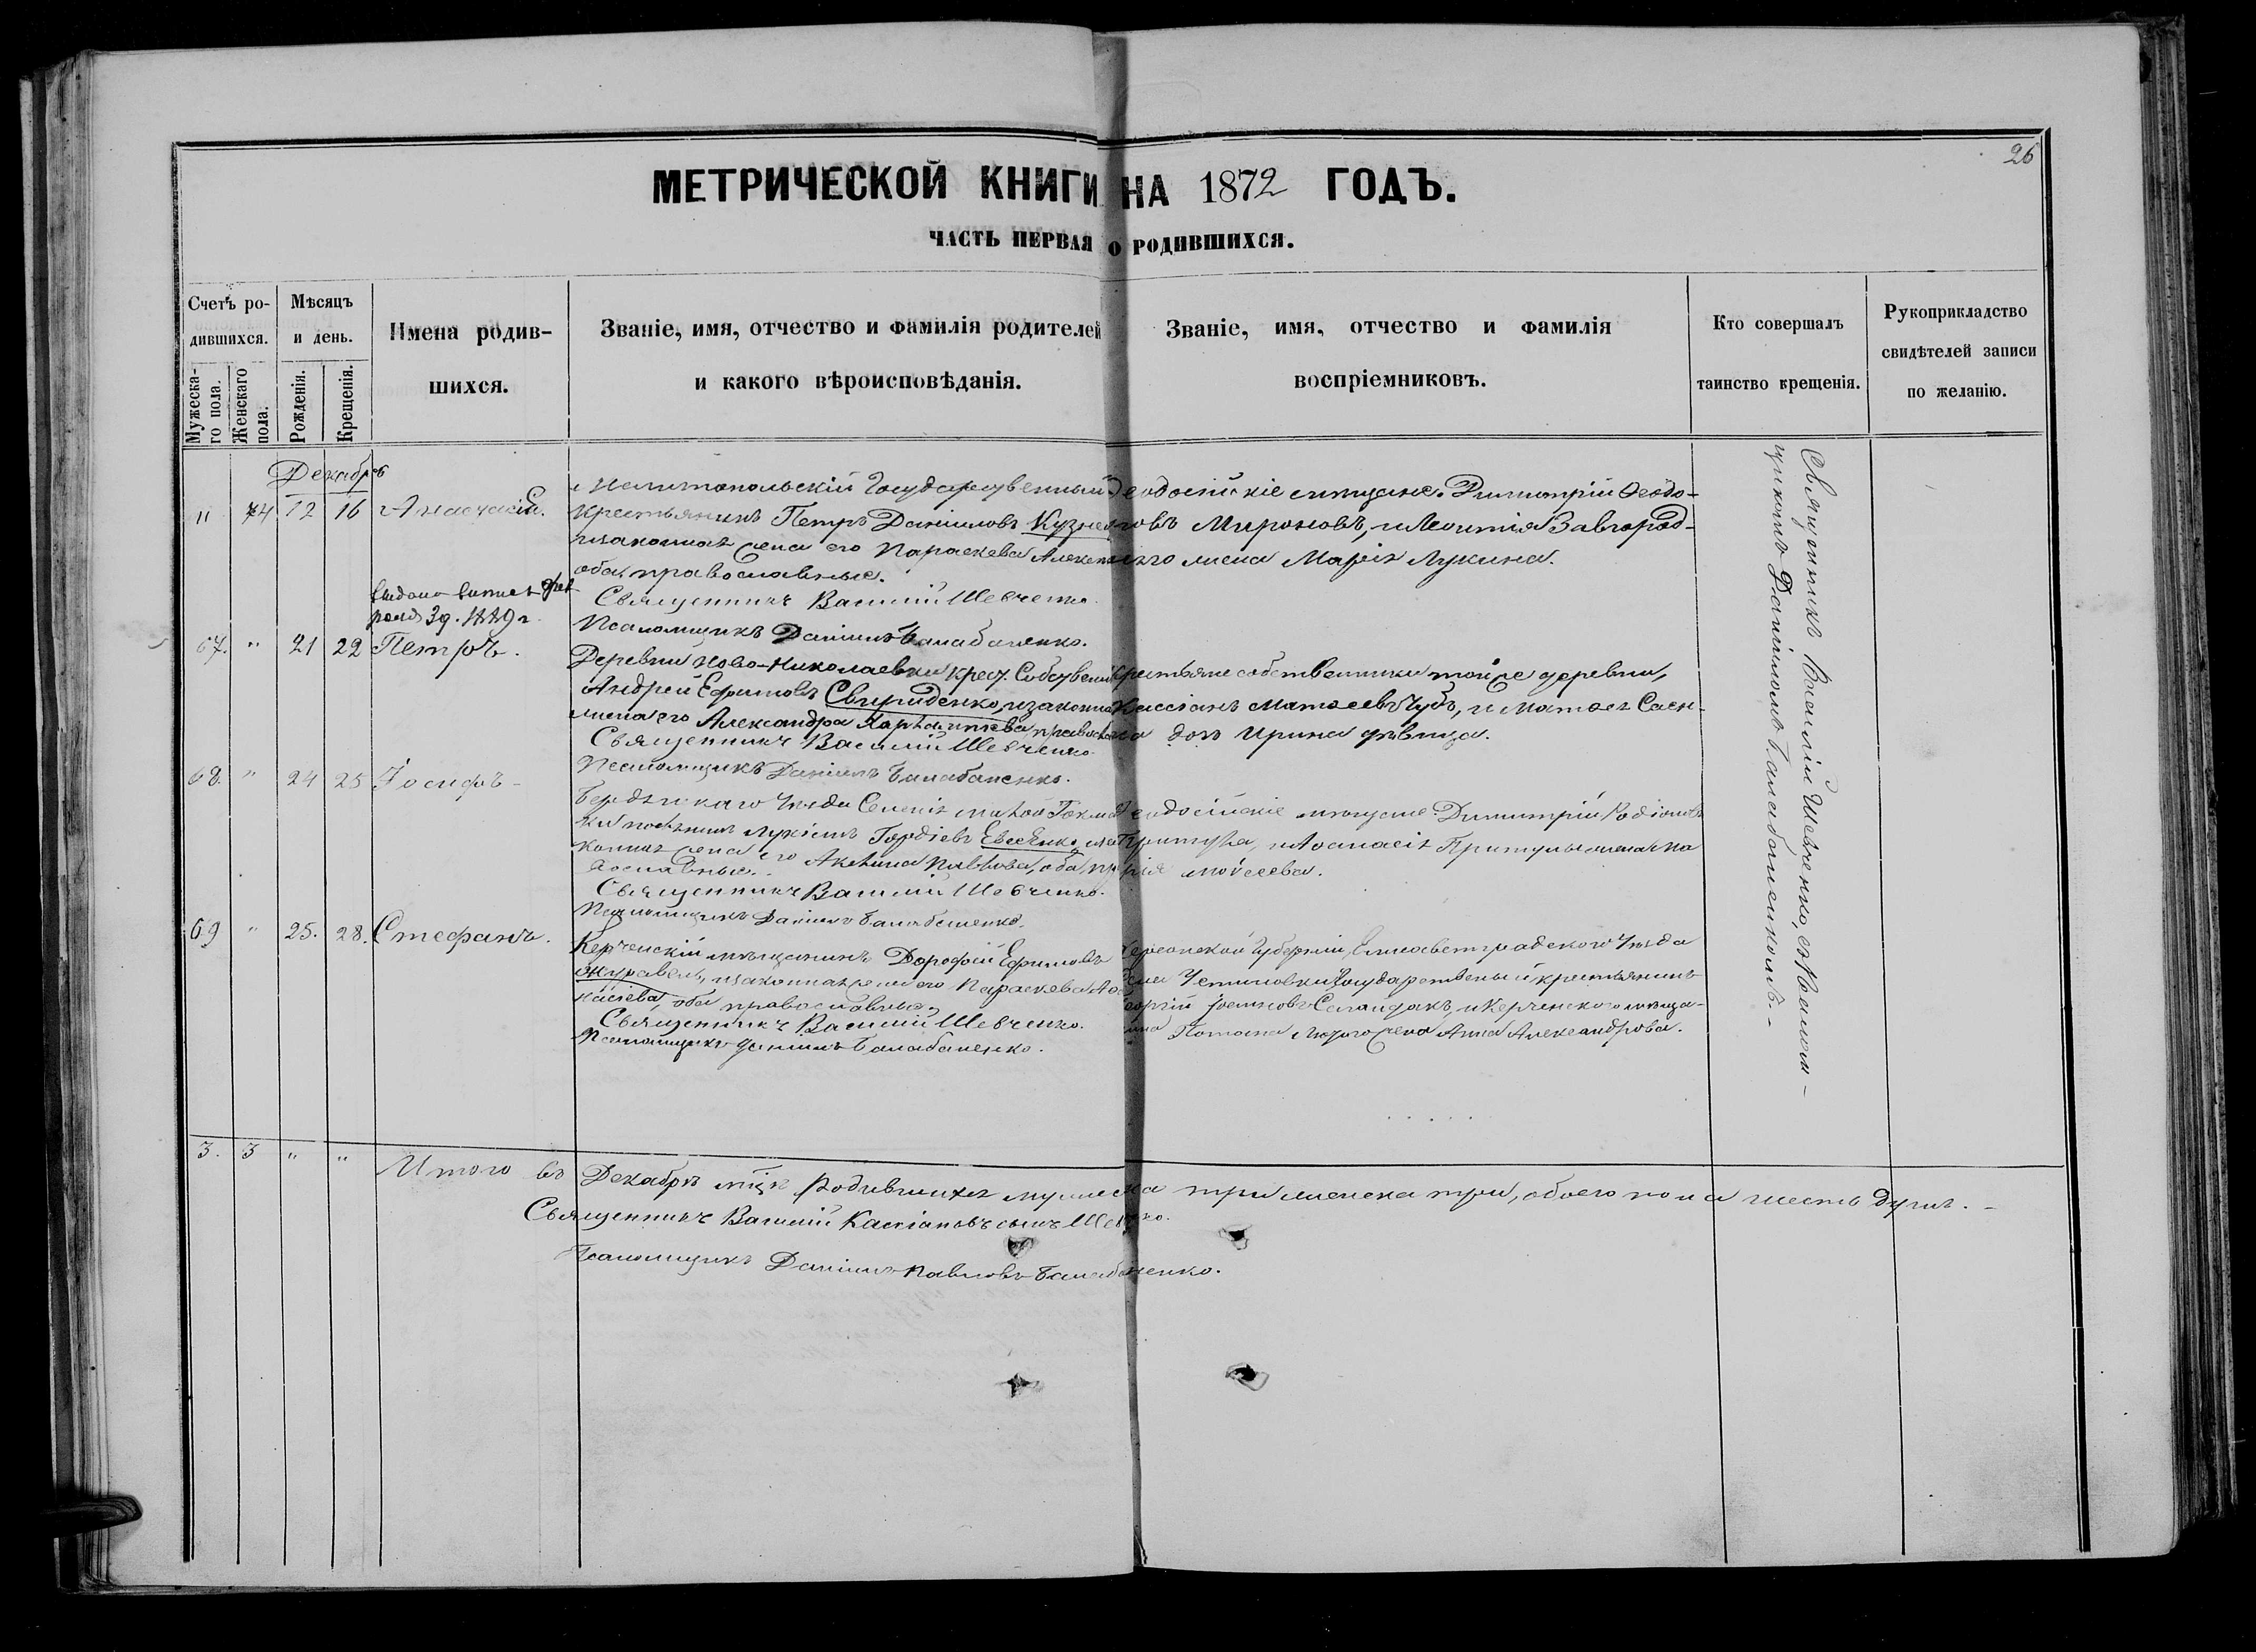 26
МЕТРИЧЕСКОЙ КНИГИ НА 1872 ГОДЪ.
ЧАСТЬ ПЕРВАЯ О РОДИВШИХСЯ.
Счетъ ро-
дившихся.
Мужеска-
го пола.
Женскаго
пола.
Мѣсяцъ
и день.
Рожденія.
Крещенія.
Имена родив-
шихся.
Званіе, имя, отчество и фамилія родителей
и какого вѣроисповѣданія.
Званіе, имя, отчество и фамилія
воспріемниковъ.
Кто совершалъ
таинство крещенія.
Рукоприкладство
свидѣтелей записи
по желанію.
Декабрь
" 74 12 16 Анастасія.
Мелитопольскій Государственный
крестьянинъ Петръ Даніиловъ Кузнецовъ
и законная жена его Параскева
оба православные.
Священникъ Василій Шевченко.
Псаломщикъ Даніилъ Балабаненко.
Ѳеодосійскіе мѣщане: Димитрій Ѳеодо-
Мироновъ, и Леонтія Завгород-
няго жена Марія Лукина.
67. " 21 22 Петръ.
Деревни Ново-Николаевки крест. Собствен
Андрей Ефимовъ Свириденко, и законная
жена его Александра
Священникъ Василій Шевченко
Псаломщикъ Даніилъ Балабаненко.
крестьяне собственники той же деревни,
Кассіанъ Матѳеевъ Чубъ, и Матѳея
дочь Ирина дѣвица.
68. " 24 25 Іосифъ
Бердянскаго Уѣзда Селенія Малой Токмач
Гордіевъ Евсѣенко, и за
конная жена его Акилина Павлова, оба пра
вославные.
Священникъ Василій Шевченко.
Псаломщикъ Даніилъ Балабаненко.
Ѳеодосійскіе мѣщане: Димитрій Родіоновъ
Притула, и Аѳанасія Притулы жена Ма
рія Моисеева.
69 " 25. 28. Стефанъ.
Керченскій мѣщанинъ Дороѳей Ефимовъ
Журавель, и законная жена его Параскева Аѳа
насіева, оба православные.
Священникъ Василій Шевченко.
Псаломщикъ Даніилъ Балабаненко.
Херсонской Губерніи, Елисаветградскаго Уѣзда
Государственный крестьянинъ
Георгій и Керченскаго мѣща-
нина Потапа жена Анна Александрова.
Священникъ Василій Шевченко, съ Псалом-
щикомъ Даніиломъ Балабаненкомъ.-
3. 3 " " Итого въ Декабрѣ м-цѣ Родившихся мужеска три женска три, обоего пола шесть душъ. -
Священникъ Василій Кассіановъ сынъ Шевченко.
Псаломщикъ Даніилъ Павловъ Балабаненко.